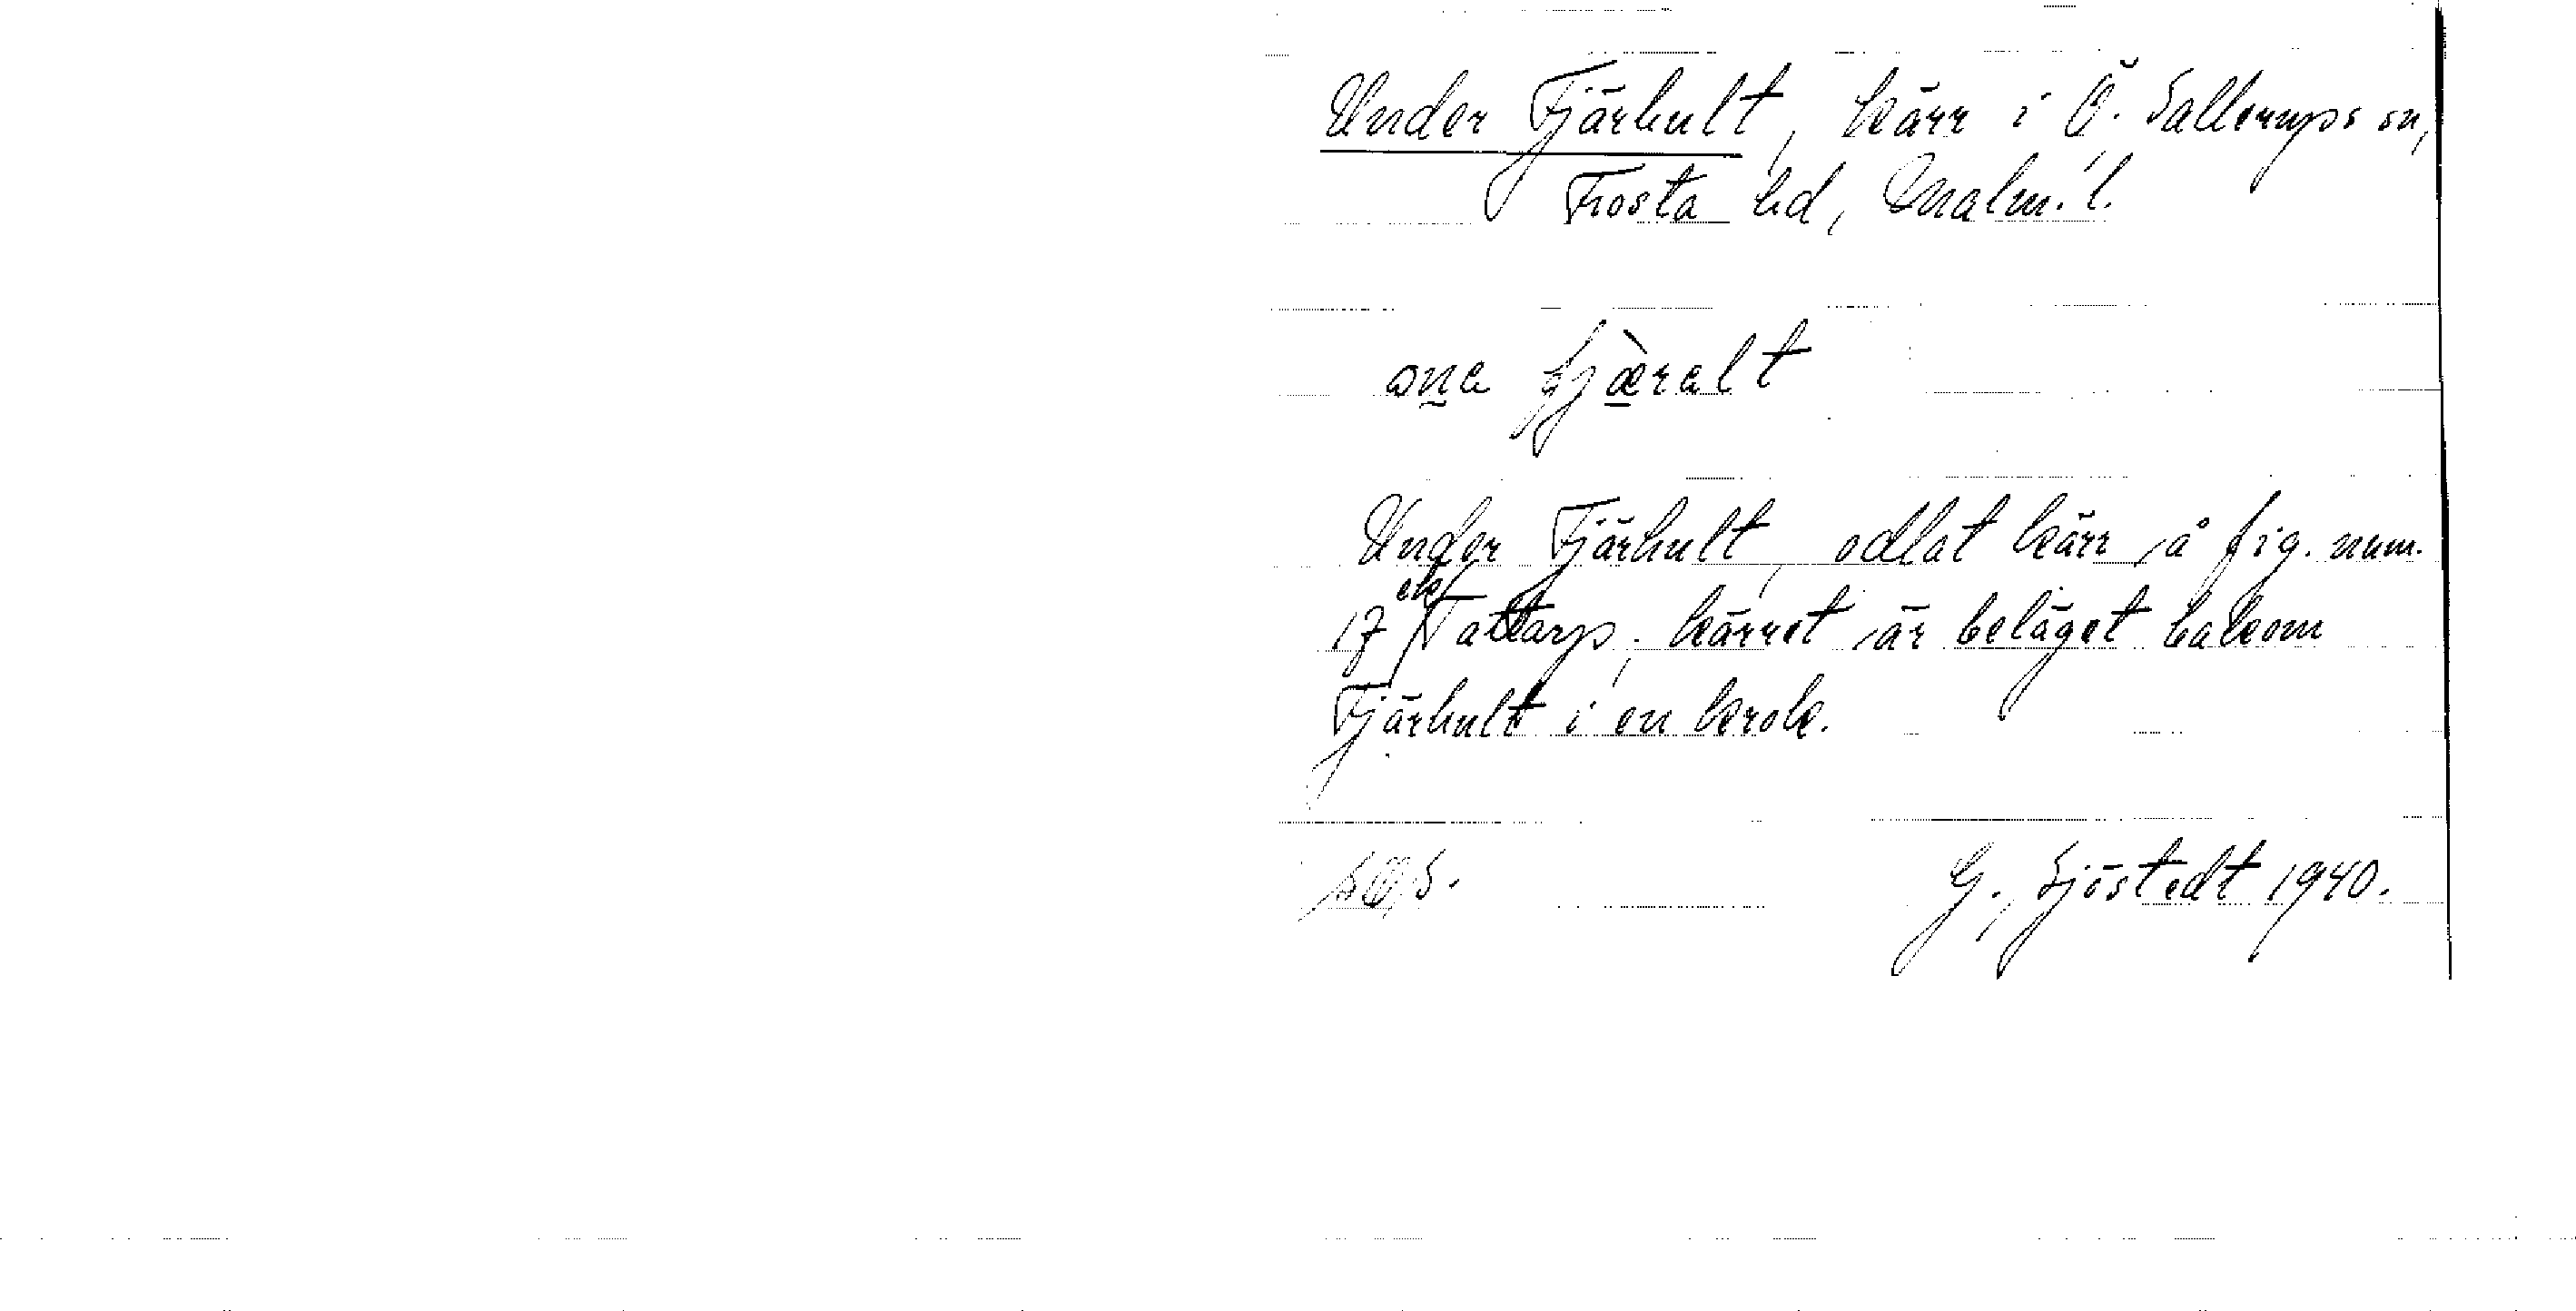 Under Fjärhult, kärr i Ö. Sallerups sn,
Frosta hd, Malm. l.
ɔna fjæ̀ralt
Under Fjärhult, odlat kärr å fig. num.
17 ek/ Tattarp; kärret är beläget bakom
Fjärhult i en krok.
G. Sjöstedt 1940.